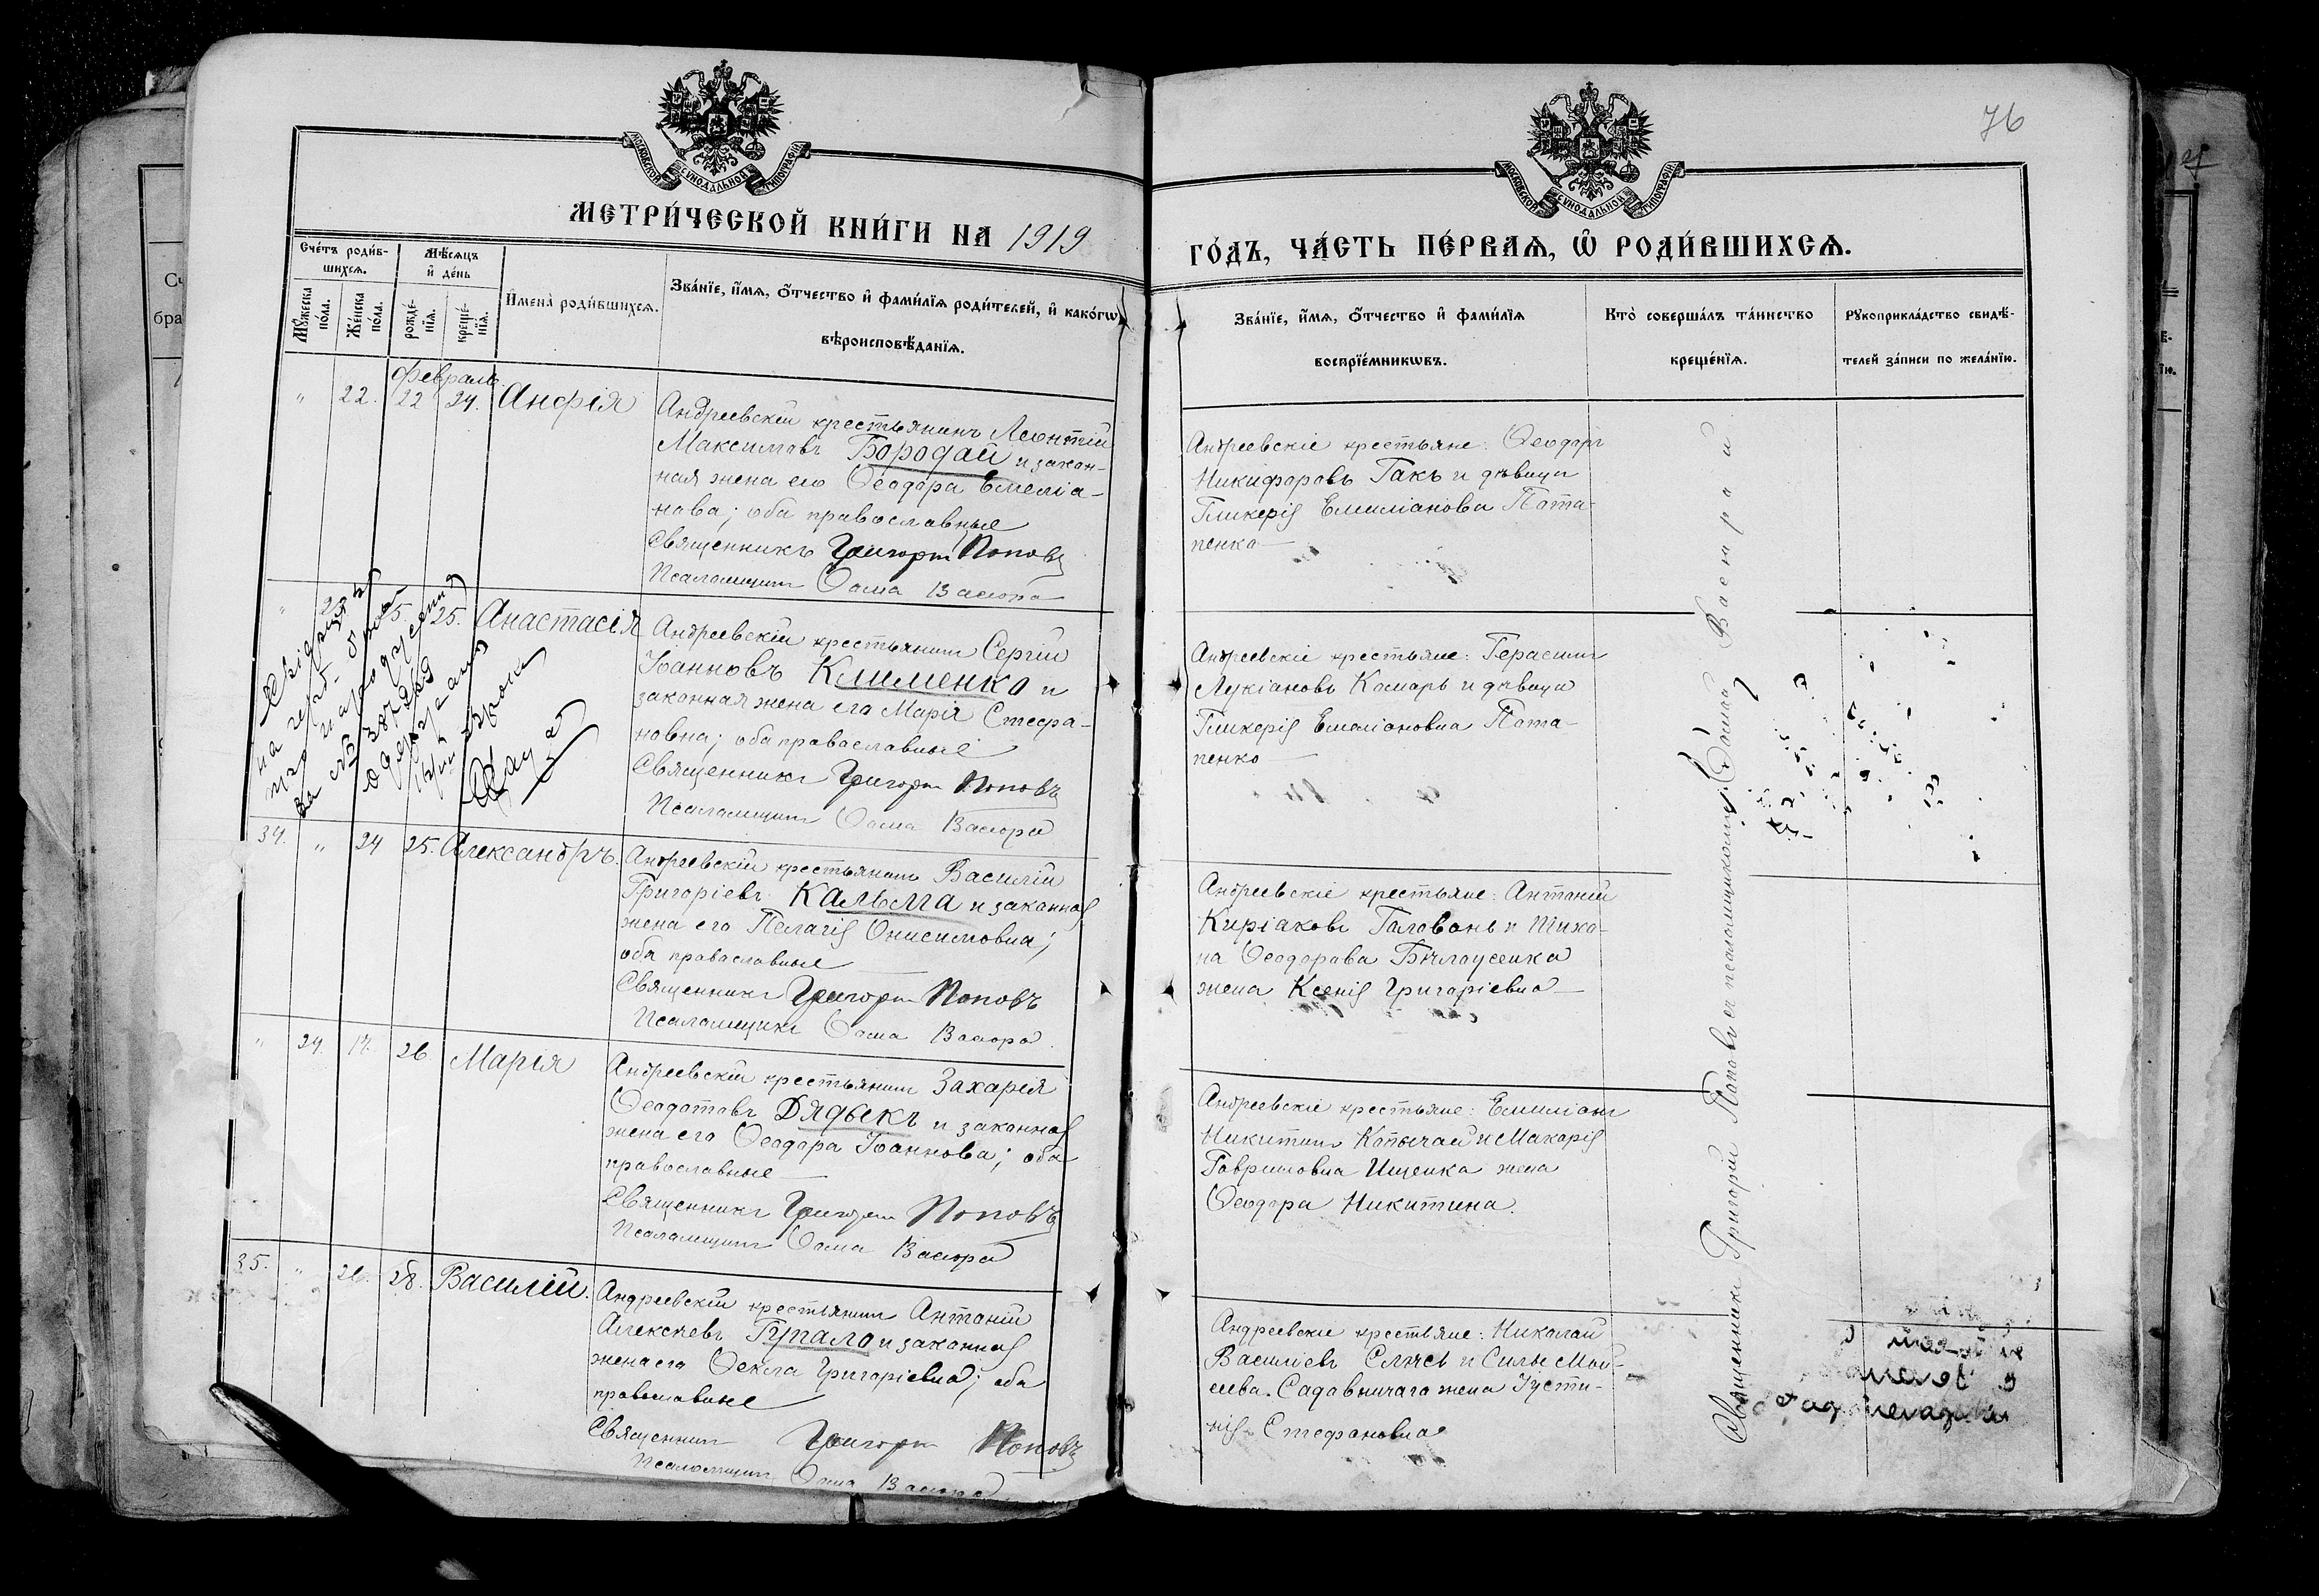 76
МОСКОВСКОЙ СѴНОДАЛЬНОЙ ТИПОГРАФІИ
МОСКОВСКОЙ СѴНОДАЛЬНОЙ ТИПОГРАФІИ
МЕТРИ́ЧЕСКОЙ КНИ́ГИ НА 1919
ГО́ДЪ, ЧА́СТЬ ПЕ́РВАѦ, Ѽ РОДИ́ВШИХСѦ.
Сче́тъ роди́в-
шихсѧ.
Мꙋ́жеска
по́ла.
Же́нска
по́ла.
Мѣ́сѧцъ
и҆ де́нь
рожде́-
нїѧ.
креще́-
нїѧ.
И҆мена̀ роди́вшихсѧ.
Зва́нїе, и҆́мѧ, ѻ҆́тчество и҆ фами́лїѧ роди́телей, и҆ како́гѡ
вѣроисповѣ́данїѧ.
Зва́нїе, и҆́мѧ, ѻ҆́тчество и҆ фами́лїѧ
воспрїе́мникѡвъ.
Кто̀ соверша́лъ та́инство
креще́нїѧ.
Рꙋкоприкла́дство свидѣ́-
телей за́писи по жела́нїю.
Февраль
" 22. 22 24. Анфія
Андреевскій крестьянинъ Леонтій
Максимовъ Бородай и закон-
ная жена его Ѳеодора Емеліа-
нова; оба православные
Священникъ Григорій Поповъ
Псаломщикъ Ѳома Васюра
Андреевскіе крестьяне: Ѳеодоръ
Никифоровъ Гакъ и дѣвица
Гликерія Емиліанова Пота-
пенко
" 23. 25. Анастасія
Андреевскій крестьянинъ Сергій
Іоанновъ Клименко и
законная жена его Марія Стефа-
новна; оба православные
Священникъ Григорій Поповъ
Псаломщикъ Ѳома Васюра
на
про народження
за № 387269
Андреевскіе крестьяне: Герасимъ
Лукіановъ Комарь и дѣвица
Гликерія Емеліановна Пота-
пенко
34. " 24 25. Александръ.
Андреевскій крестьянинъ Василій
Григоріевъ Кальма и законная
жена его Пелагія Онисимовна;
оба православные
Священникъ Григорій Поповъ
Псаломщикъ Ѳома Васюра.
Андреевскіе крестьяне: Антоній
Киріаковъ Головань и Тихо-
на Ѳеодорова Бѣлоусенка
жена Ксенія Григоріевна
" 24. 17. 26 Марія
Андреевскій крестьянинъ Захарія
Ѳеодотовъ Дядыкъ и законная
жена его Ѳеодора Іоаннова; оба
православные
Священникъ Григорій Поповъ
Псаломщикъ Ѳома Васюра
Андреевскіе крестьяне: Емиліанъ
Никитинъ Копычай и Макарія
Гавриловна Ищенка жена
Ѳеодора Никитина.
35. " 26. 28. Василій.
Андреевскій крестьянинъ Антоній
Алексѣевъ Гупало и законная
жена его Ѳекла Григоріевна; оба
православные
Священникъ Григорій Поповъ
Псаломщикъ Ѳома Васюра
Андреевскіе крестьяне: Николай
Василіевъ и Силы Мой-
сеева Садовничаго жена Іусти-
нія Стефановна
Священникъ Григорій Поповъ съ псаломщикомъ Ѳомой Васюрой